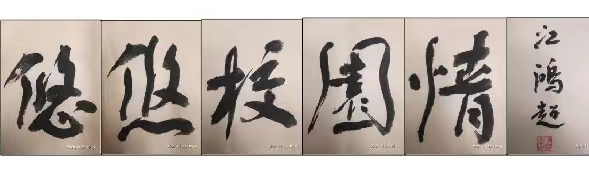 悠悠校園情
江鴻超